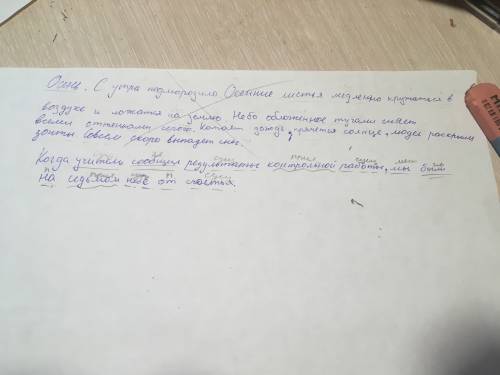 Осень. С утра подморозило Осенние листья медленно кружатся в
воздухе и ложатся на землю. Небо обложенное тучами сияет
всеми оттенками серого. Капает дождь, прячется солнце, люди раскрыли
зонты Совсем скоро выпадет снег.
Когда учитель сообщил результаты контрольной работы, мы были
На седьмом небе от счастья.